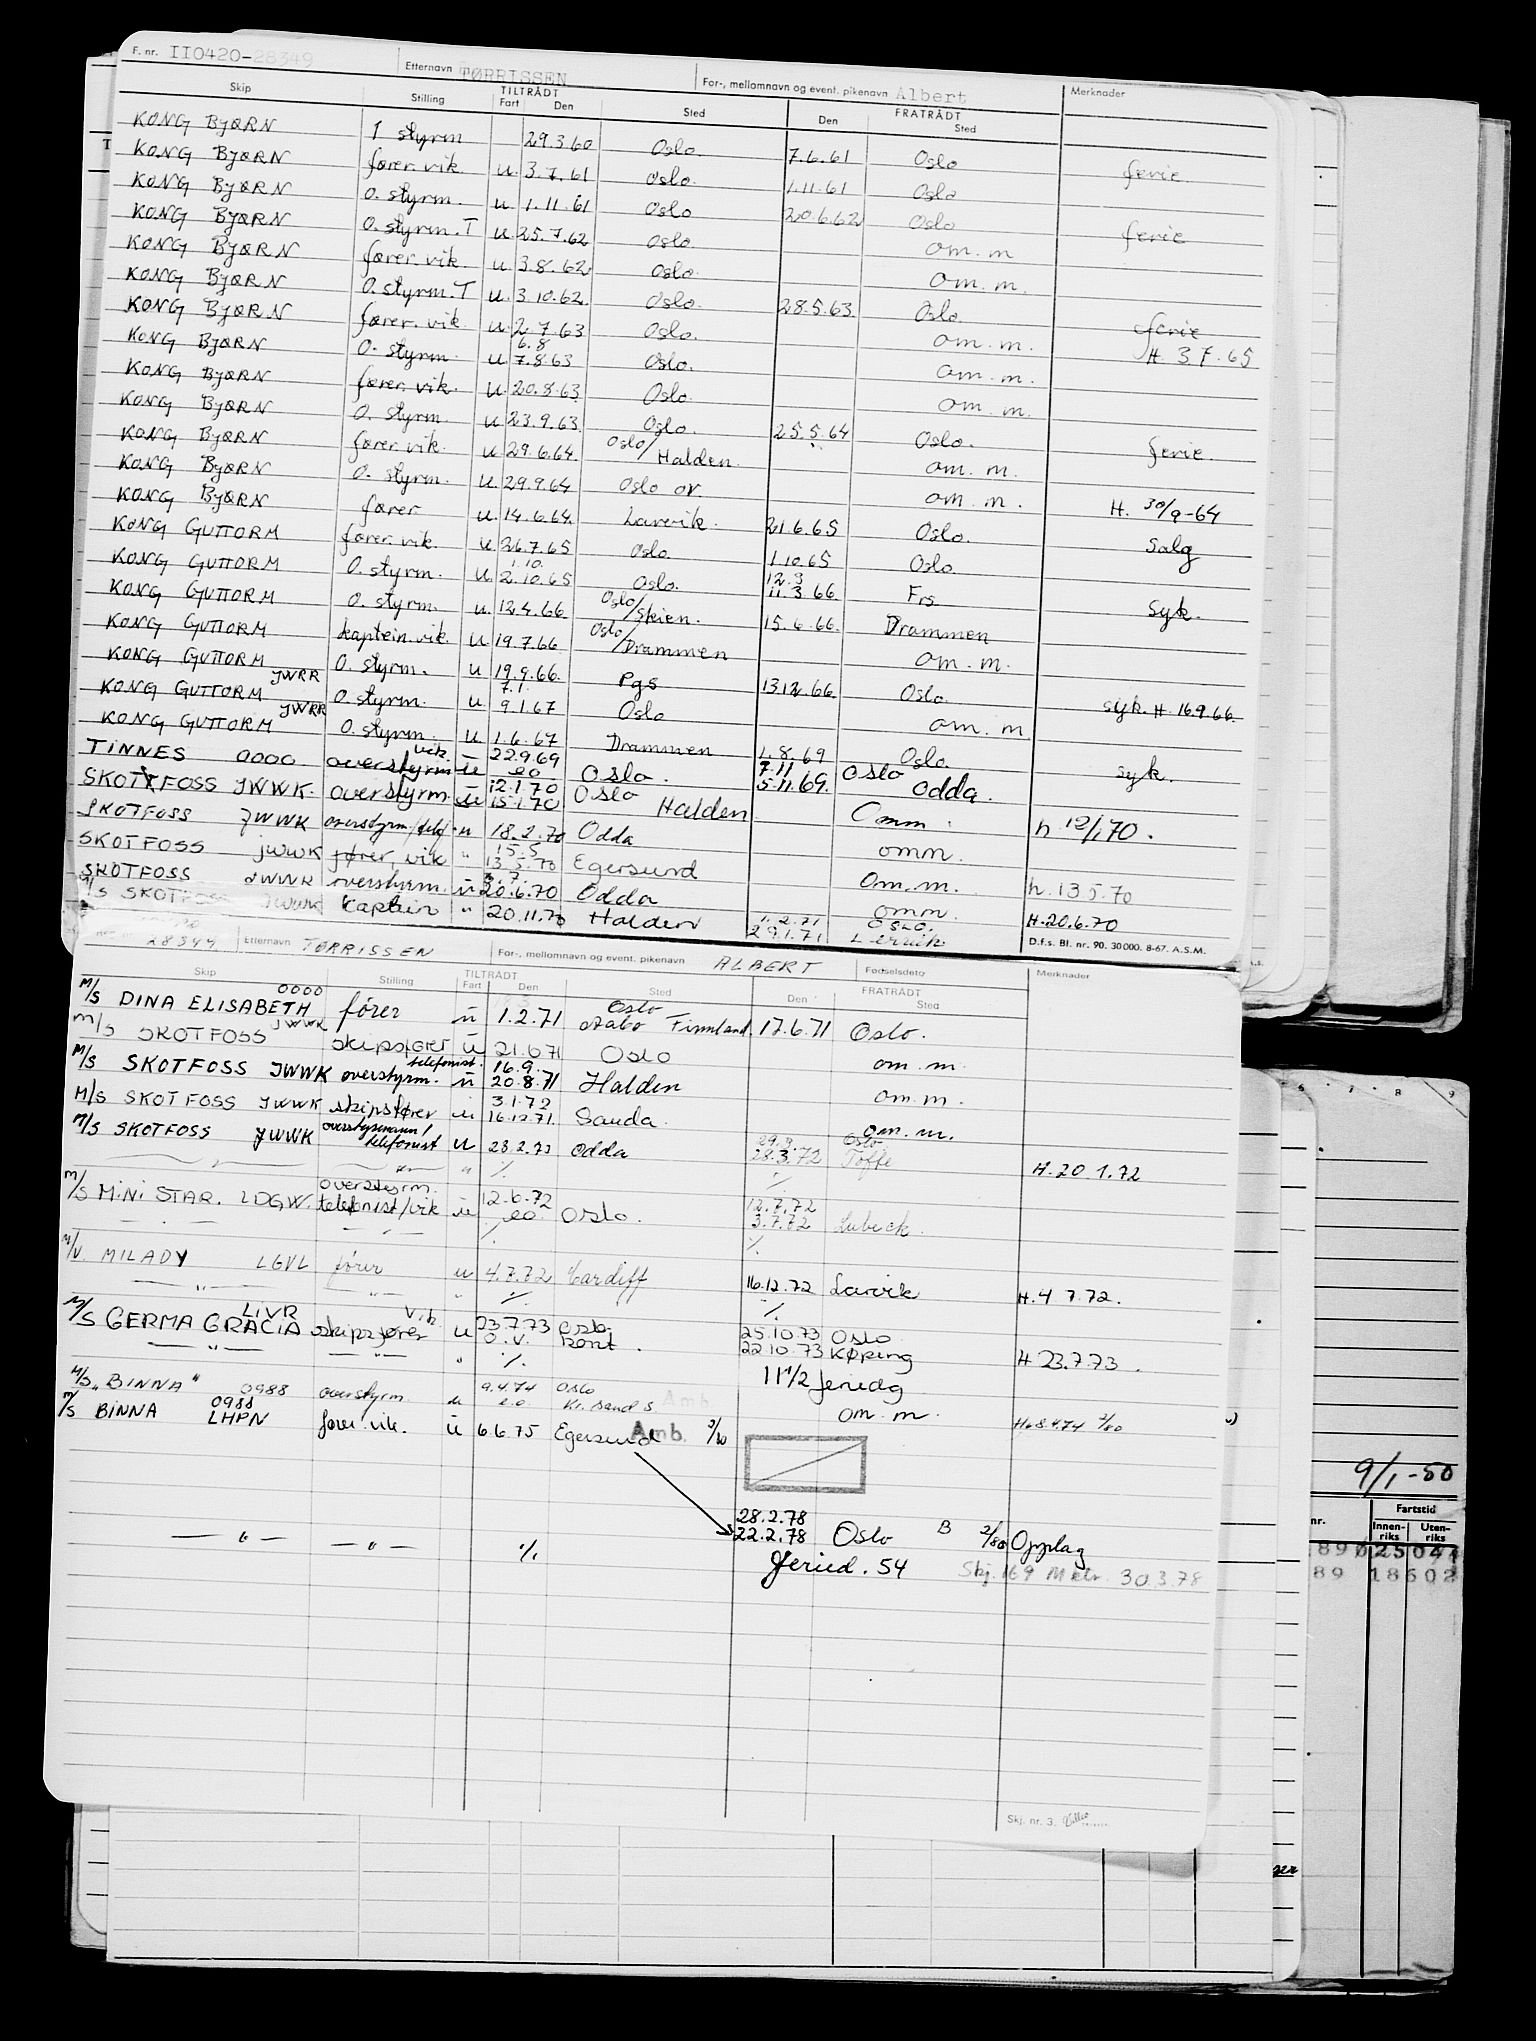 F. nr. 110420-28349 Etternavn TØRRISSEN For-, mellomnavn og event. pikenavn Albert Merknader
Skip Stilling TILTRÅDT Fart Den Sted FRATRÅDT Den Sted
KONG BJØRN 1 styrm 29.3.60 Oslo. 7.6.61 Oslo ferie
KONG BJØRN fører. vik. u. 3.7.61 Oslo. 1.11.61 Oslo
KONG BJØRN O. styrm. u. 1.11.61 Oslo 20.6.62 Oslo ferie
KONG BJØRN O. styrm. T u. 25.7.62 Oslo om. m
KONG BJØRN fører. vik. u. 3.8.62 Oslo om. m.
KONG BJØRN O. styrm. T u. 3.10.62. Oslo. 28.5.63. Oslo. ferie
KONG BJØRN fører. vik u. 2.7.63 Oslo. om. m. H. 3 7.65
KONG BJØRN O. styrm. u. 6.8 7.8.63 Oslo. om. m.
KONG BJØRN fører. vik. u. 20.8.63. Oslo om. m.
KONG BJØRN O. styrm. u. 23.9.63. Oslo. 25.5.64 Oslo. ferie.
KONG BJØRN fører. vik. u. 29.6.64. Oslo/Halden. om. m.
KONG BJØRN O. styrm. u. 29.9.64 Oslo ov. om. m. H. 30/9-64
KONG BJØRN fører u. 14.6.64. Larvik. 21.6.65 Oslo. Salg
KONG GUTTORM fører. vik. u. 26.7.65 Oslo. 1.10.65 Oslo
KONG GUTTORM O. styrm. u. 1.10. 2.10.65 Oslo. 12.3 11.3.66. Frs Syk.
KONG GUTTORM O. styrm. u. 12.4.66. Oslo/Skien. 15.6.66. Drammen
KONG GUTTORM kaptein. vik. u 19.7.66 Oslo/Drammen om. m.
KONG GUTTORM O. styrm. u 19.9.66. Pgs 13.12.66. Oslo. syk. H. 16.9.66.
KONG GUTTORM JWRR O. styrm. u. 7.1. 9.1.67 Oslo om. m
KONG GUTTORM JWRR O. styrm. u 1.6.67 Drammen 1.8.69 Oslo. syk.
TINNES OOOO overstyrm vik. u 22.9.69 eo Oslo. 7.11 5.11.69. Oslo Odda.
SKOTFOSS JWWK. overstyrm u 12.1.70 15.1.70 Oslo Halden Omm. h 12/1.70.
SKOTFOSS JWWK overstyrm/telef. u 18.2.70 Odda omm.
SKOTFOSS JWWK fører, vik " 15.5 13.5.70 Egersund Om. m. h. 13 5.70
SKOTFOSS JWWK overstyrm. u 20.6.70 Odda omm. H. 20.6.70
M/S SKOTFOSS JWWK kaptein " 20.11.70 Halden 1.2.71 29.1.71 OSLO.
D.f.s. Bl. nr. 90. 30000. 8-67. A.S.M.
28349 Etternavn TØRRISSEN For-, mellomnavn og event. pikenavn ALBERT Fødselsdato Merknader
Skip Stilling TILTRÅDT Fart Den Sted FRATRÅDT Den Sted
M/S DINA ELISABETH OOOO fører u 1.2.71 Oslo Åabo Finnland. 17.6.71 Oslo.
M/S SKOTFOSS JWWK skipsfører u 21.6.71 Oslo om. m.
M/S SKOTFOSS JWWK overstyrm. telefonist. u 16.9. 20.8.71 Halden om. m.
M/S SKOTFOSS JWWK skipsfører u 3.1.72 16.12.71. Sauda. om. m.
M/S SKOTFOSS JWWK overstyrmann/telefonist u 28.2.72 Odda 29.3. 28.3.72 Oslo Tofte H. 20.1.72
— " — " ·/. ·/.
M/S MINI STAR. LDGW. overstyrm. telefonist/vik u 12.6.72 eo. Oslo. 12.7.72 3.7.72 Lubeck.
— " — ·/. ·/.
M/V. MILADY LGVL fører u 4.7.72 Cardiff 16.12.72 Larvik H. 4 7.72.
— " — " " ·/. ·/.
M/S GERMA GRACIA LIVR skipsfører Vik. u 23.7.73 o.v. Oslo. 25.10.73 22.10.73 Oslo Køping H 23.7.73.
— " — — " — " ·/. 11 1/2 feriedg
M/S "BINNA" 0988 overstyrm. u 9.4.74 e.o. Oslo Kr. sand S. Amb. om. m. H. 8.4.74 2/80
M/S BINNA 0988 LHPN fører. vik. u 6.6.75 Egersund Amb. 2/80
28.2.78
— " — — " — ·/. 22.2.78 Oslo B 2/80 Opplag
feried. 54 Skj. 169 M elv. 30.3.78
Skj. nr. 3.
9/1-50
nr. Fartstid
Innen-riks Uten-riks
89 18602